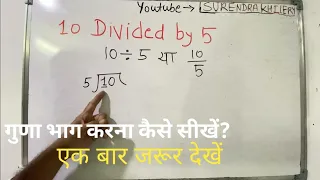 Youtube→ SURENDRAKHILERY
10 Divided by 5
10÷5 या 10/5
5)10(
गुणा भाग करना कैसे सीखें?
एक बार जरूर देखें